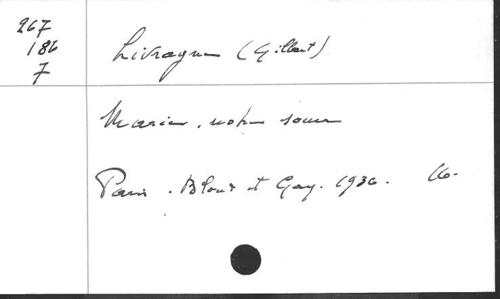 267
186
7
Livragne (Gilbert)
Marie, notre soeur
Paris. Bloud et Gay. 1936. 16.